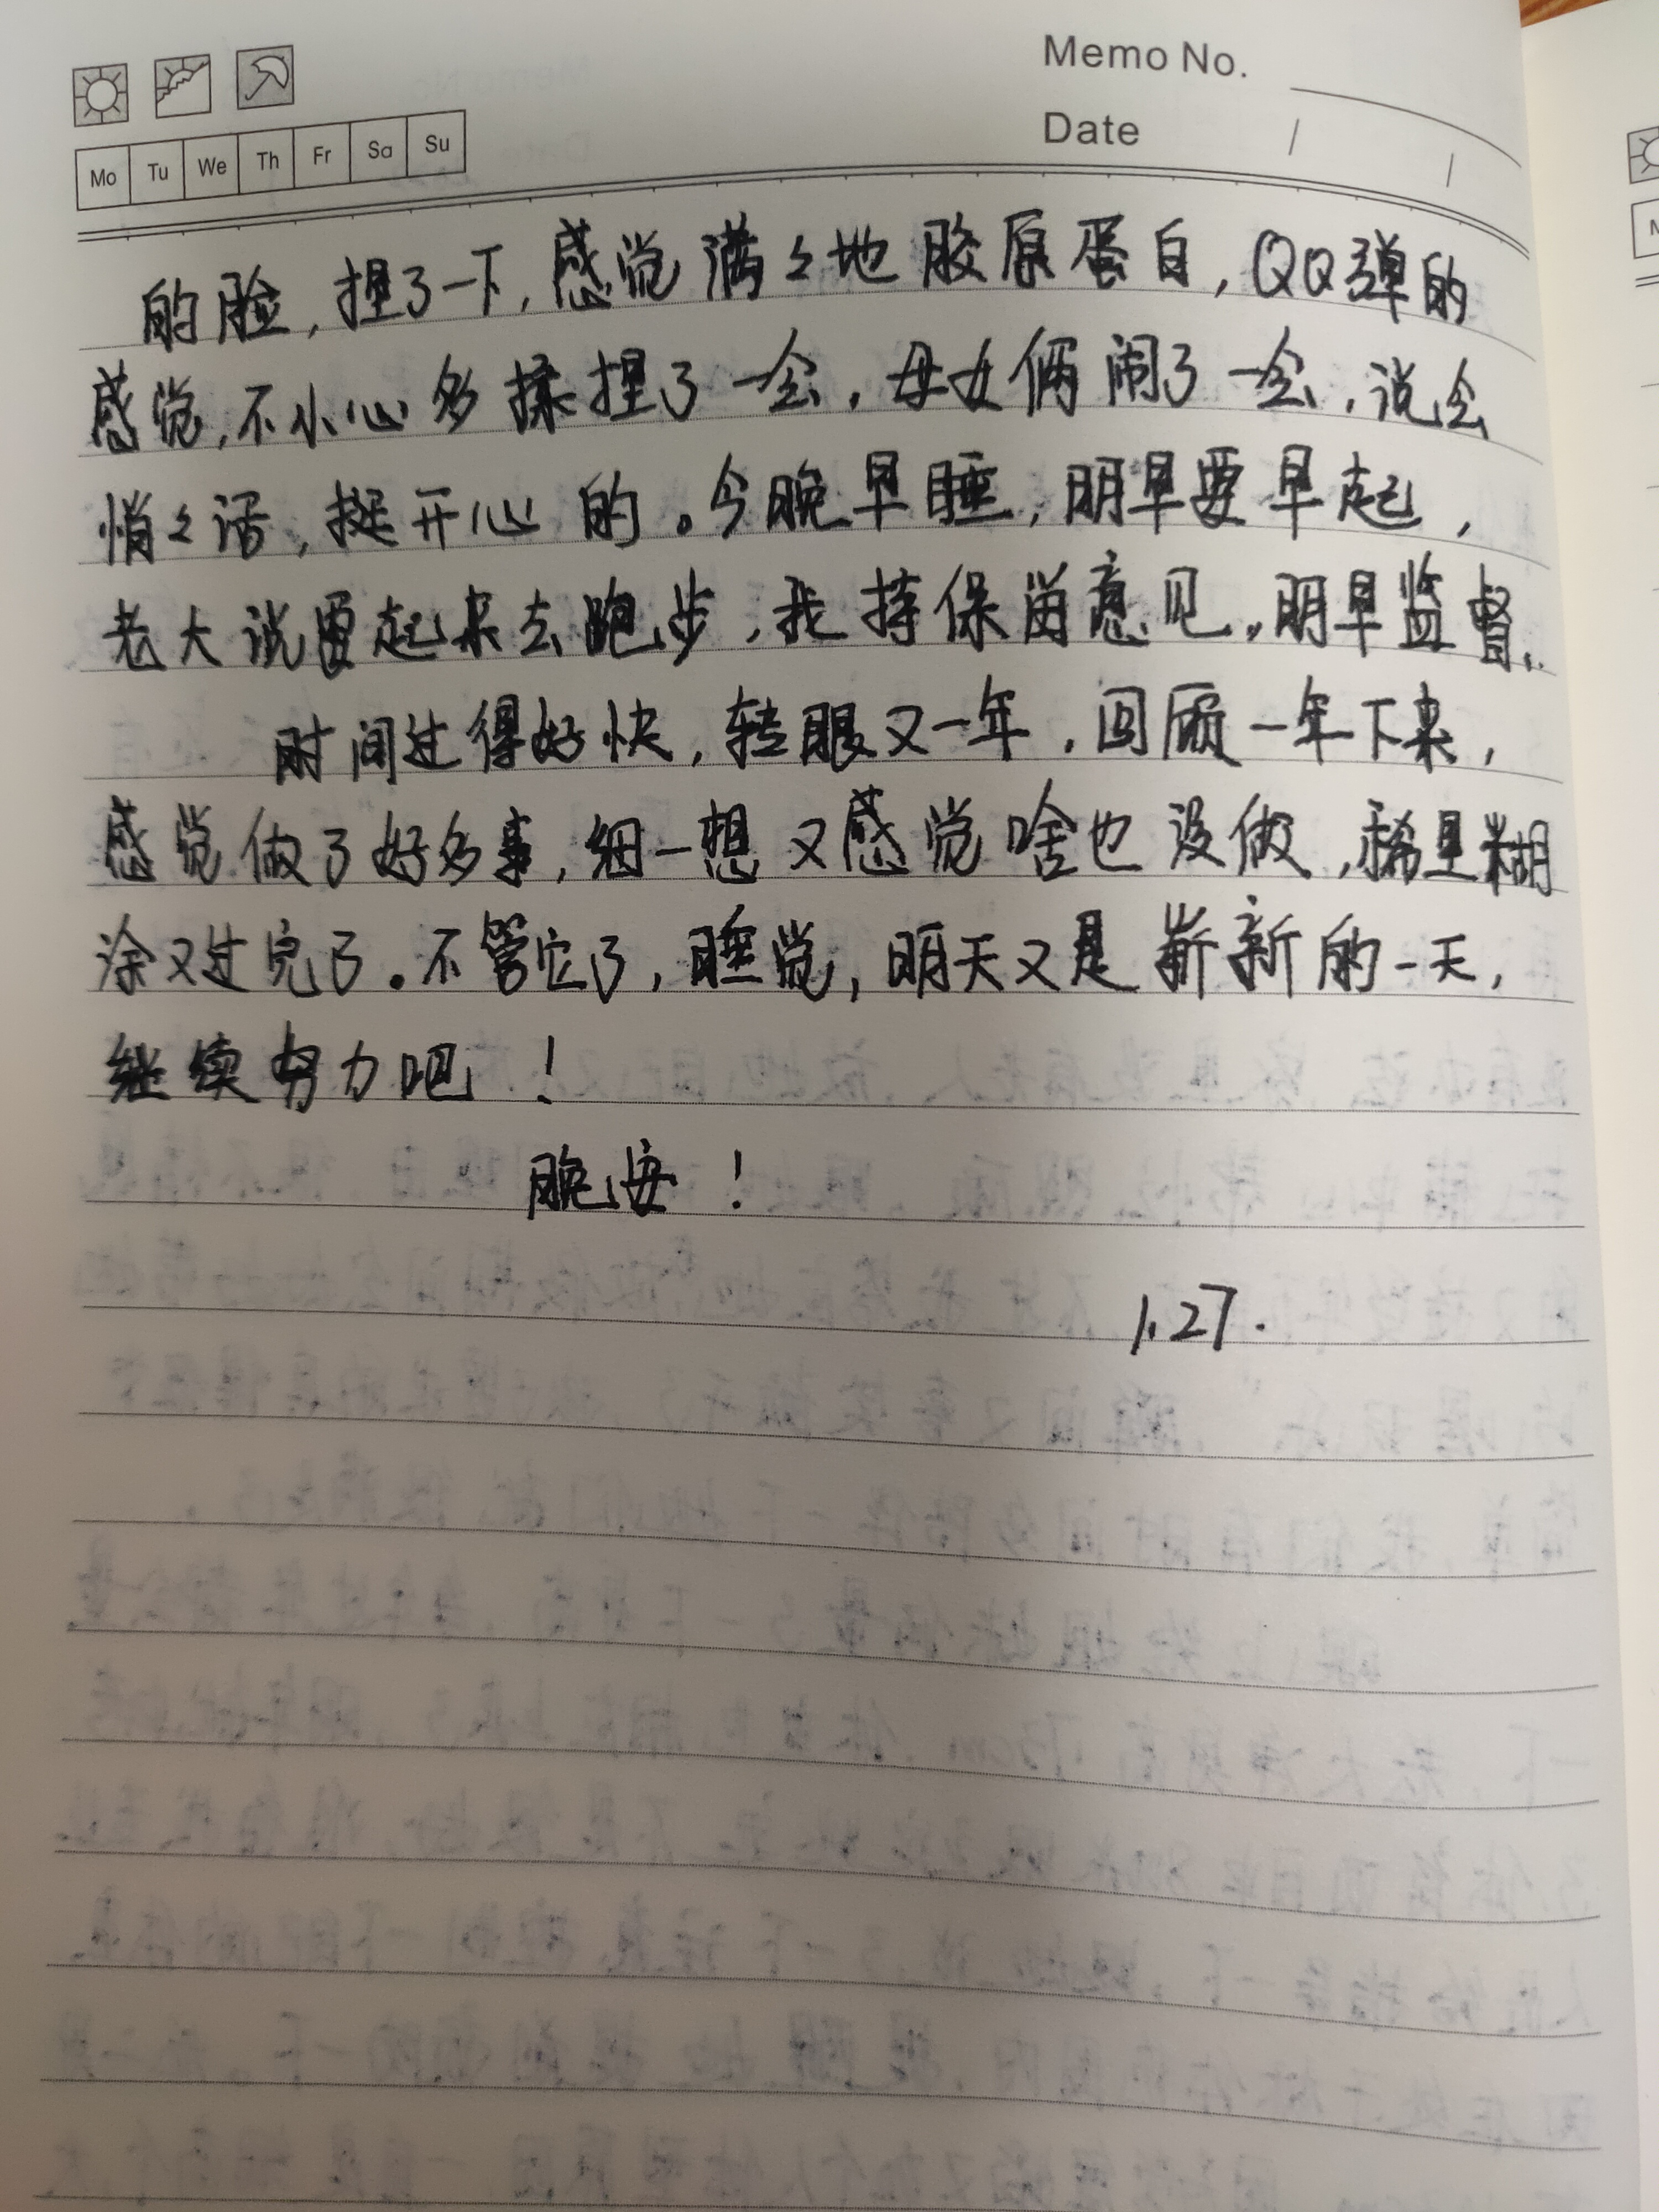 Memo No.
Date / /
Mo Tu We Th Fr Sa Su
的脸，捏了一下，感觉满々地胶原蛋白，QQ弹的
感觉，不小心多揉捏了一会，母女俩闹了一会，说会
悄々话，挺开心的。今晚早睡，明早要早起，
老大说要起来去跑步，我持保留意见，明早监督。
时间过得好快，转眼又一年，回顾一年下来，
感觉做了好多事，细一想又感觉啥也没做，稀里糊
涂又过完了。不管它了，睡觉，明天又是崭新的一天，
继续努力吧！
晚安！
1.27.